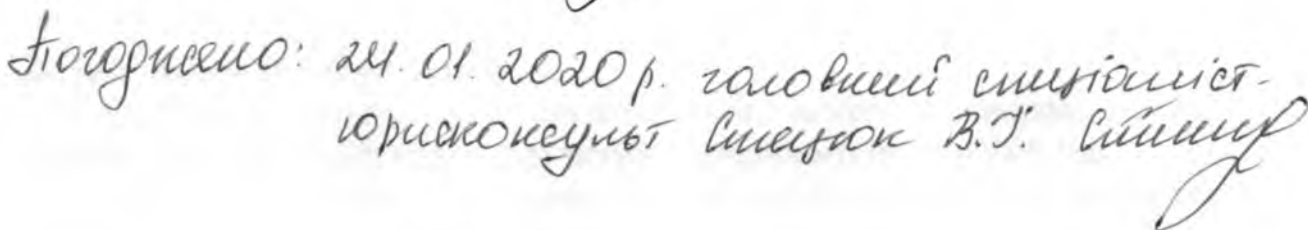 Погоджено: 24.01.2020 р. головний спеціаліст-
юрисконсульт Стецюк В.Г.